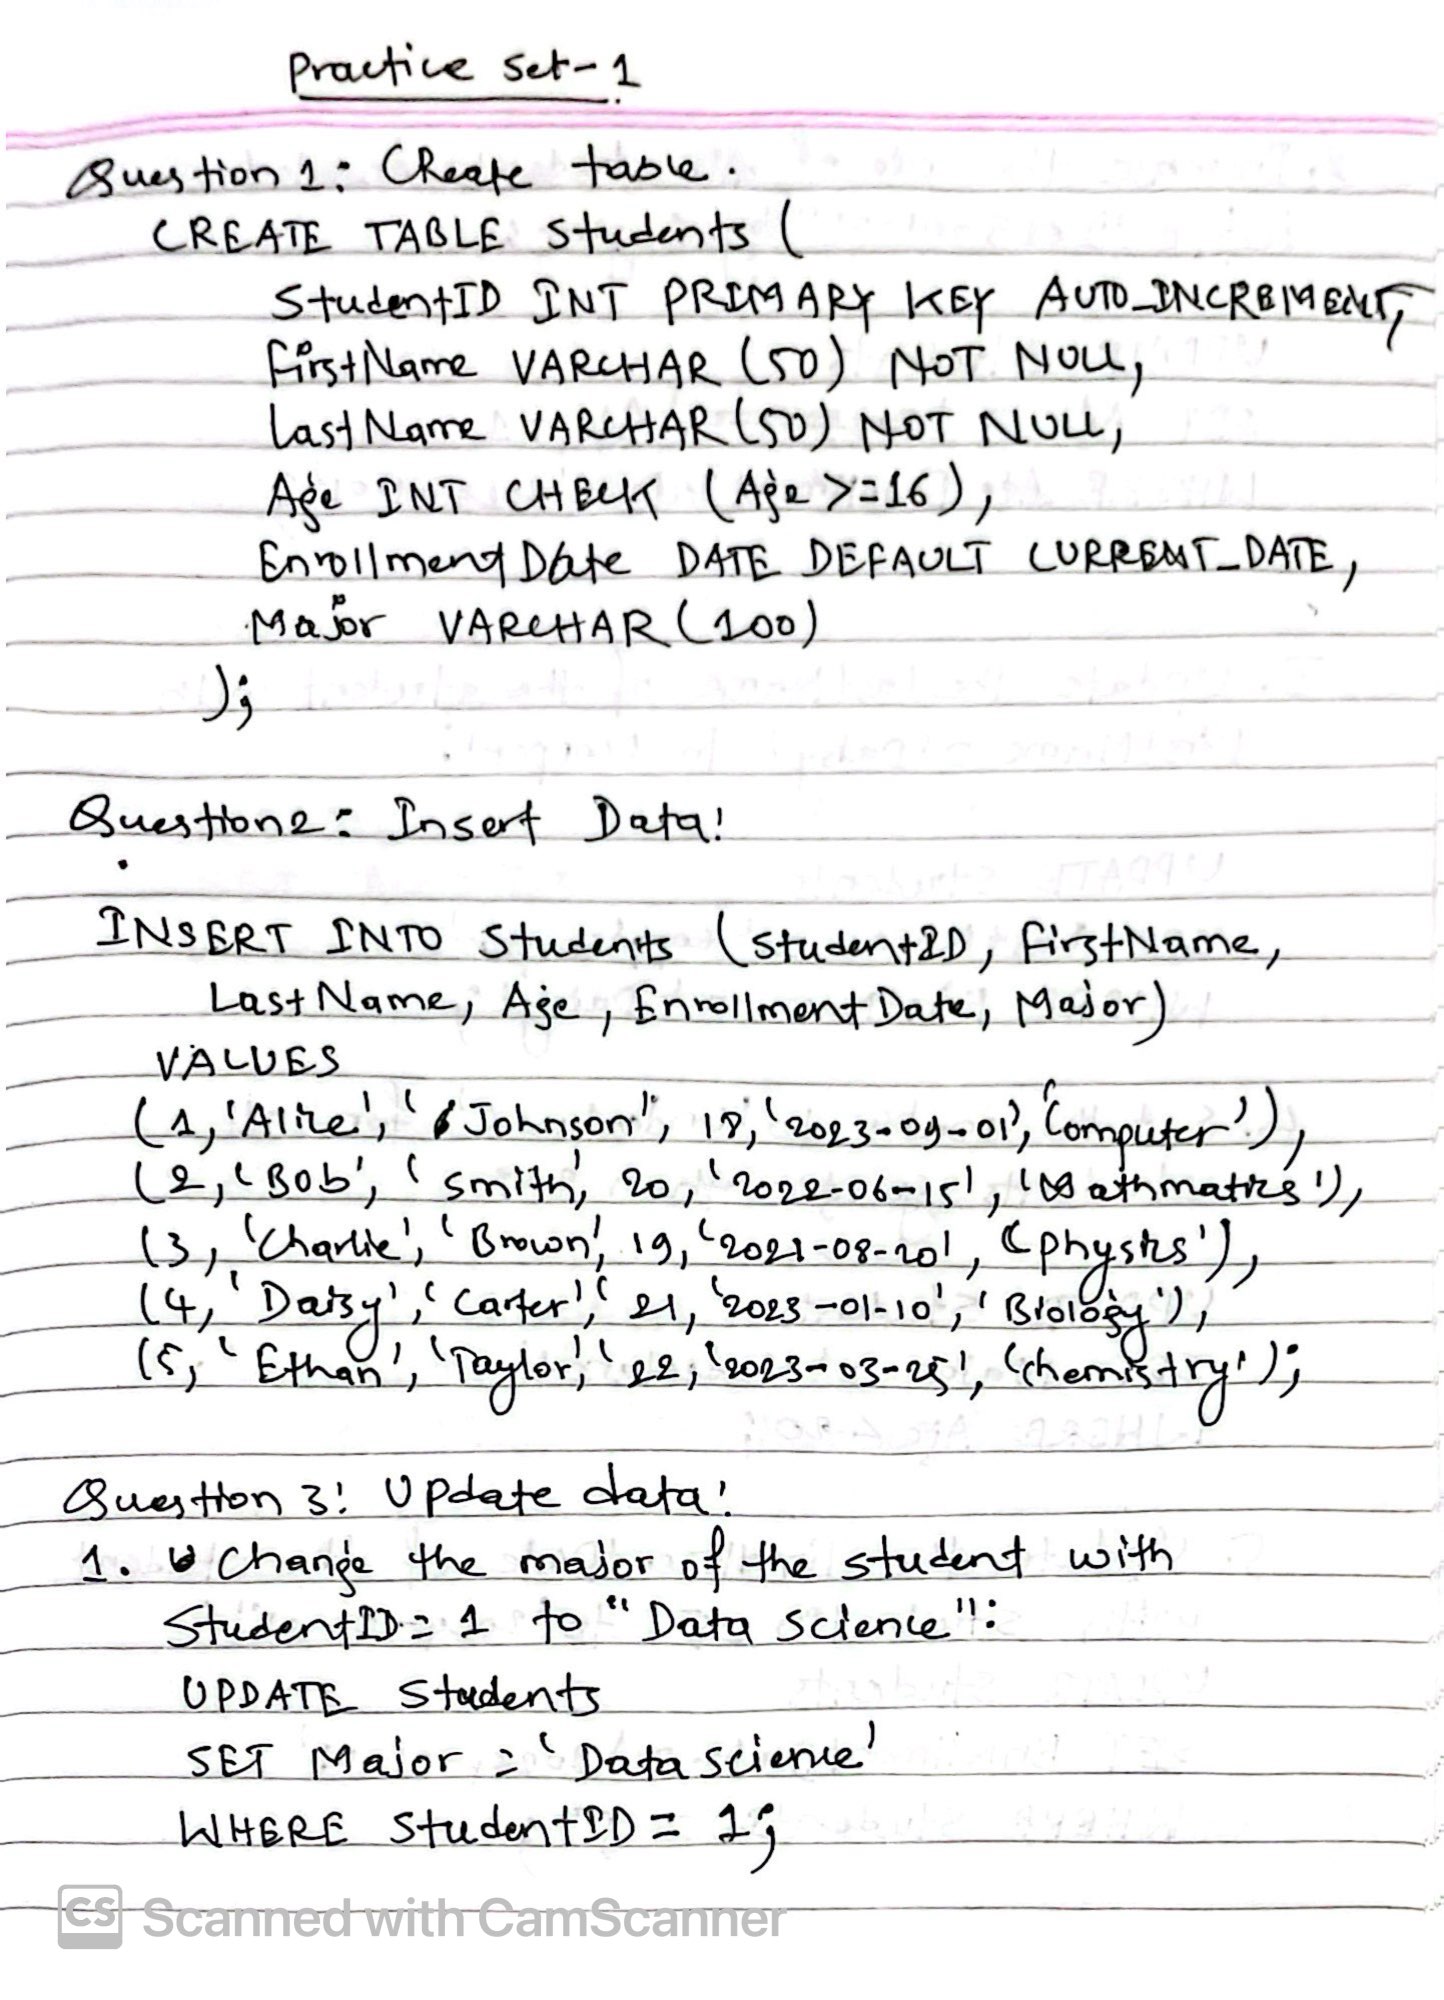 Practice Set-1
Question 1: Create table.
CREATE TABLE Students (
StudentID INT PRIMARY KEY AUTO_INCREMENT,
FirstName VARCHAR (50) NOT NULL,
LastName VARCHAR (50) NOT NULL,
Age INT CHECK (Age >=16),
EnrollmentDate DATE DEFAULT CURRENT_DATE,
Major VARCHAR (100)
);
Question 2: Insert Data:
INSERT INTO Students (StudentID, FirstName,
LastName, Age, EnrollmentDate, Major)
VALUES
(1, 'Alice', 'Johnson', 18, '2023-09-01', 'Computer'),
(2, 'Bob', 'Smith', 20, '2022-06-15', 'Mathmatics'),
(3, 'Charlie', 'Brown', 19, '2021-08-20', 'physics'),
(4, 'Daisy', 'Carter', '21, '2023-01-10', 'Biology'),
(5, 'Ethan', 'Taylor', '22, '2023-03-25', 'chemistry');
Question 3: Update data:
1. Change the major of the student with
StudentID = 1 to "Data Science":
UPDATE Students
SET Major = 'Data Science'
WHERE StudentID = 1;
CS Scanned with CamScanner